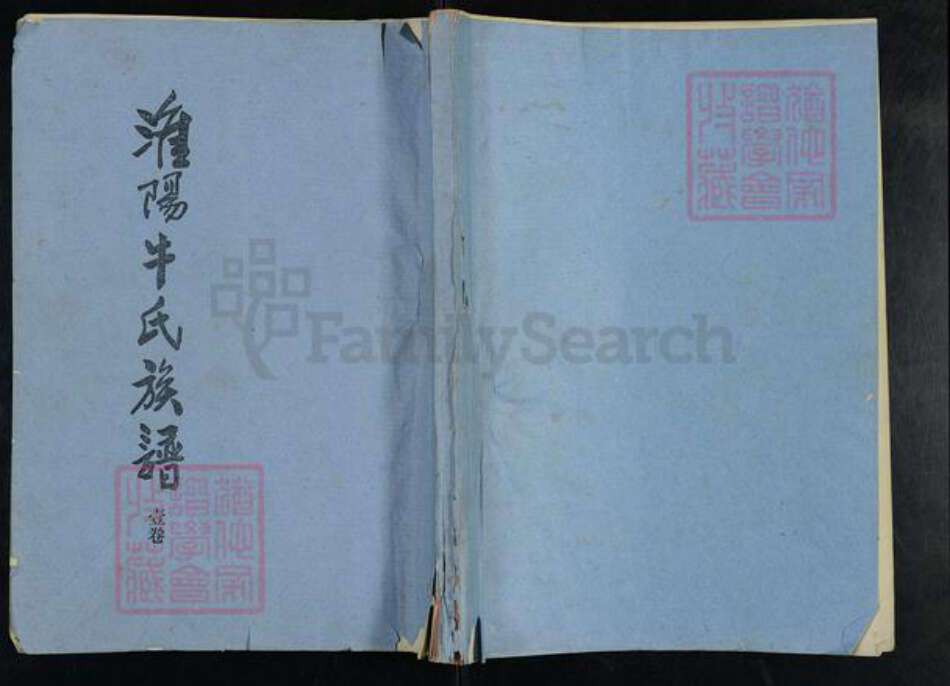 淮陽牛氏族譜
壹卷
FamilySearch
猶他家
譜學會
收藏
猶他家
譜學會
收藏